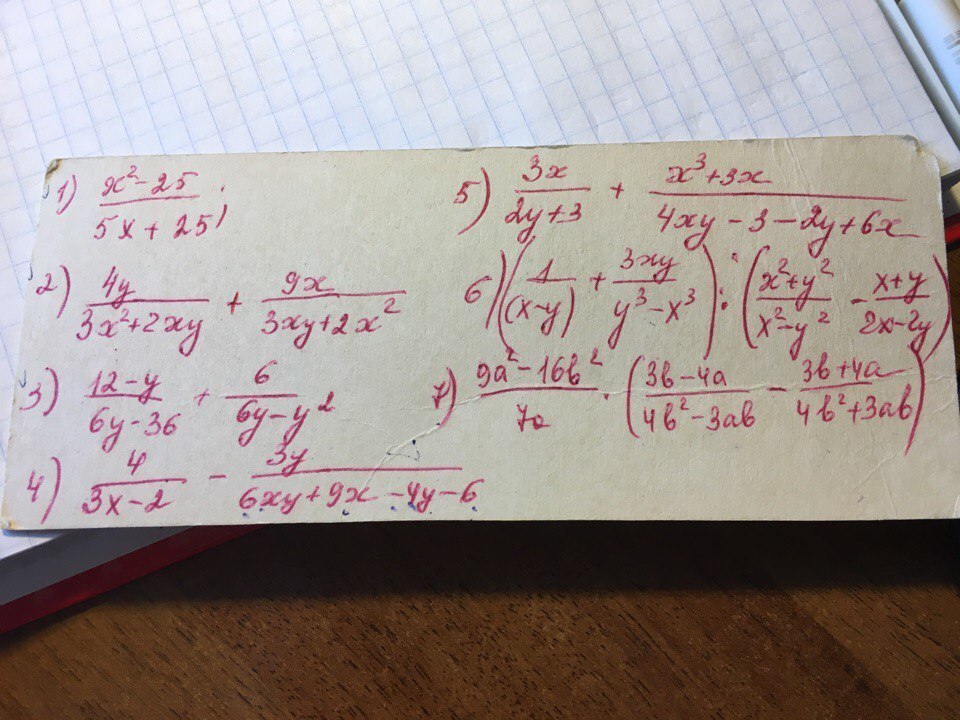 1) (x² - 25)/(5x + 25);
2) 4y/(3x² + 2xy) + 9x/(3xy + 2x²)
3) (12 - y)/(6y - 36) + 6/(6y - y²)
4) 4/(3x - 2) - 3y/(6xy + 9x - 4y - 6)
5) 3x/(2y + 3) + (x³ + 3x)/(4xy - 3 - 2y + 6x)
6) (1/(x-y) + 3xy/(y³ - x³)) : ((x² + y²)/(x² - y²) - (x + y)/(2x - 2y))
7) (9a² - 16b²)/7a · ((3b - 4a)/(4b² - 3ab) - (3b + 4a)/(4b² + 3ab))